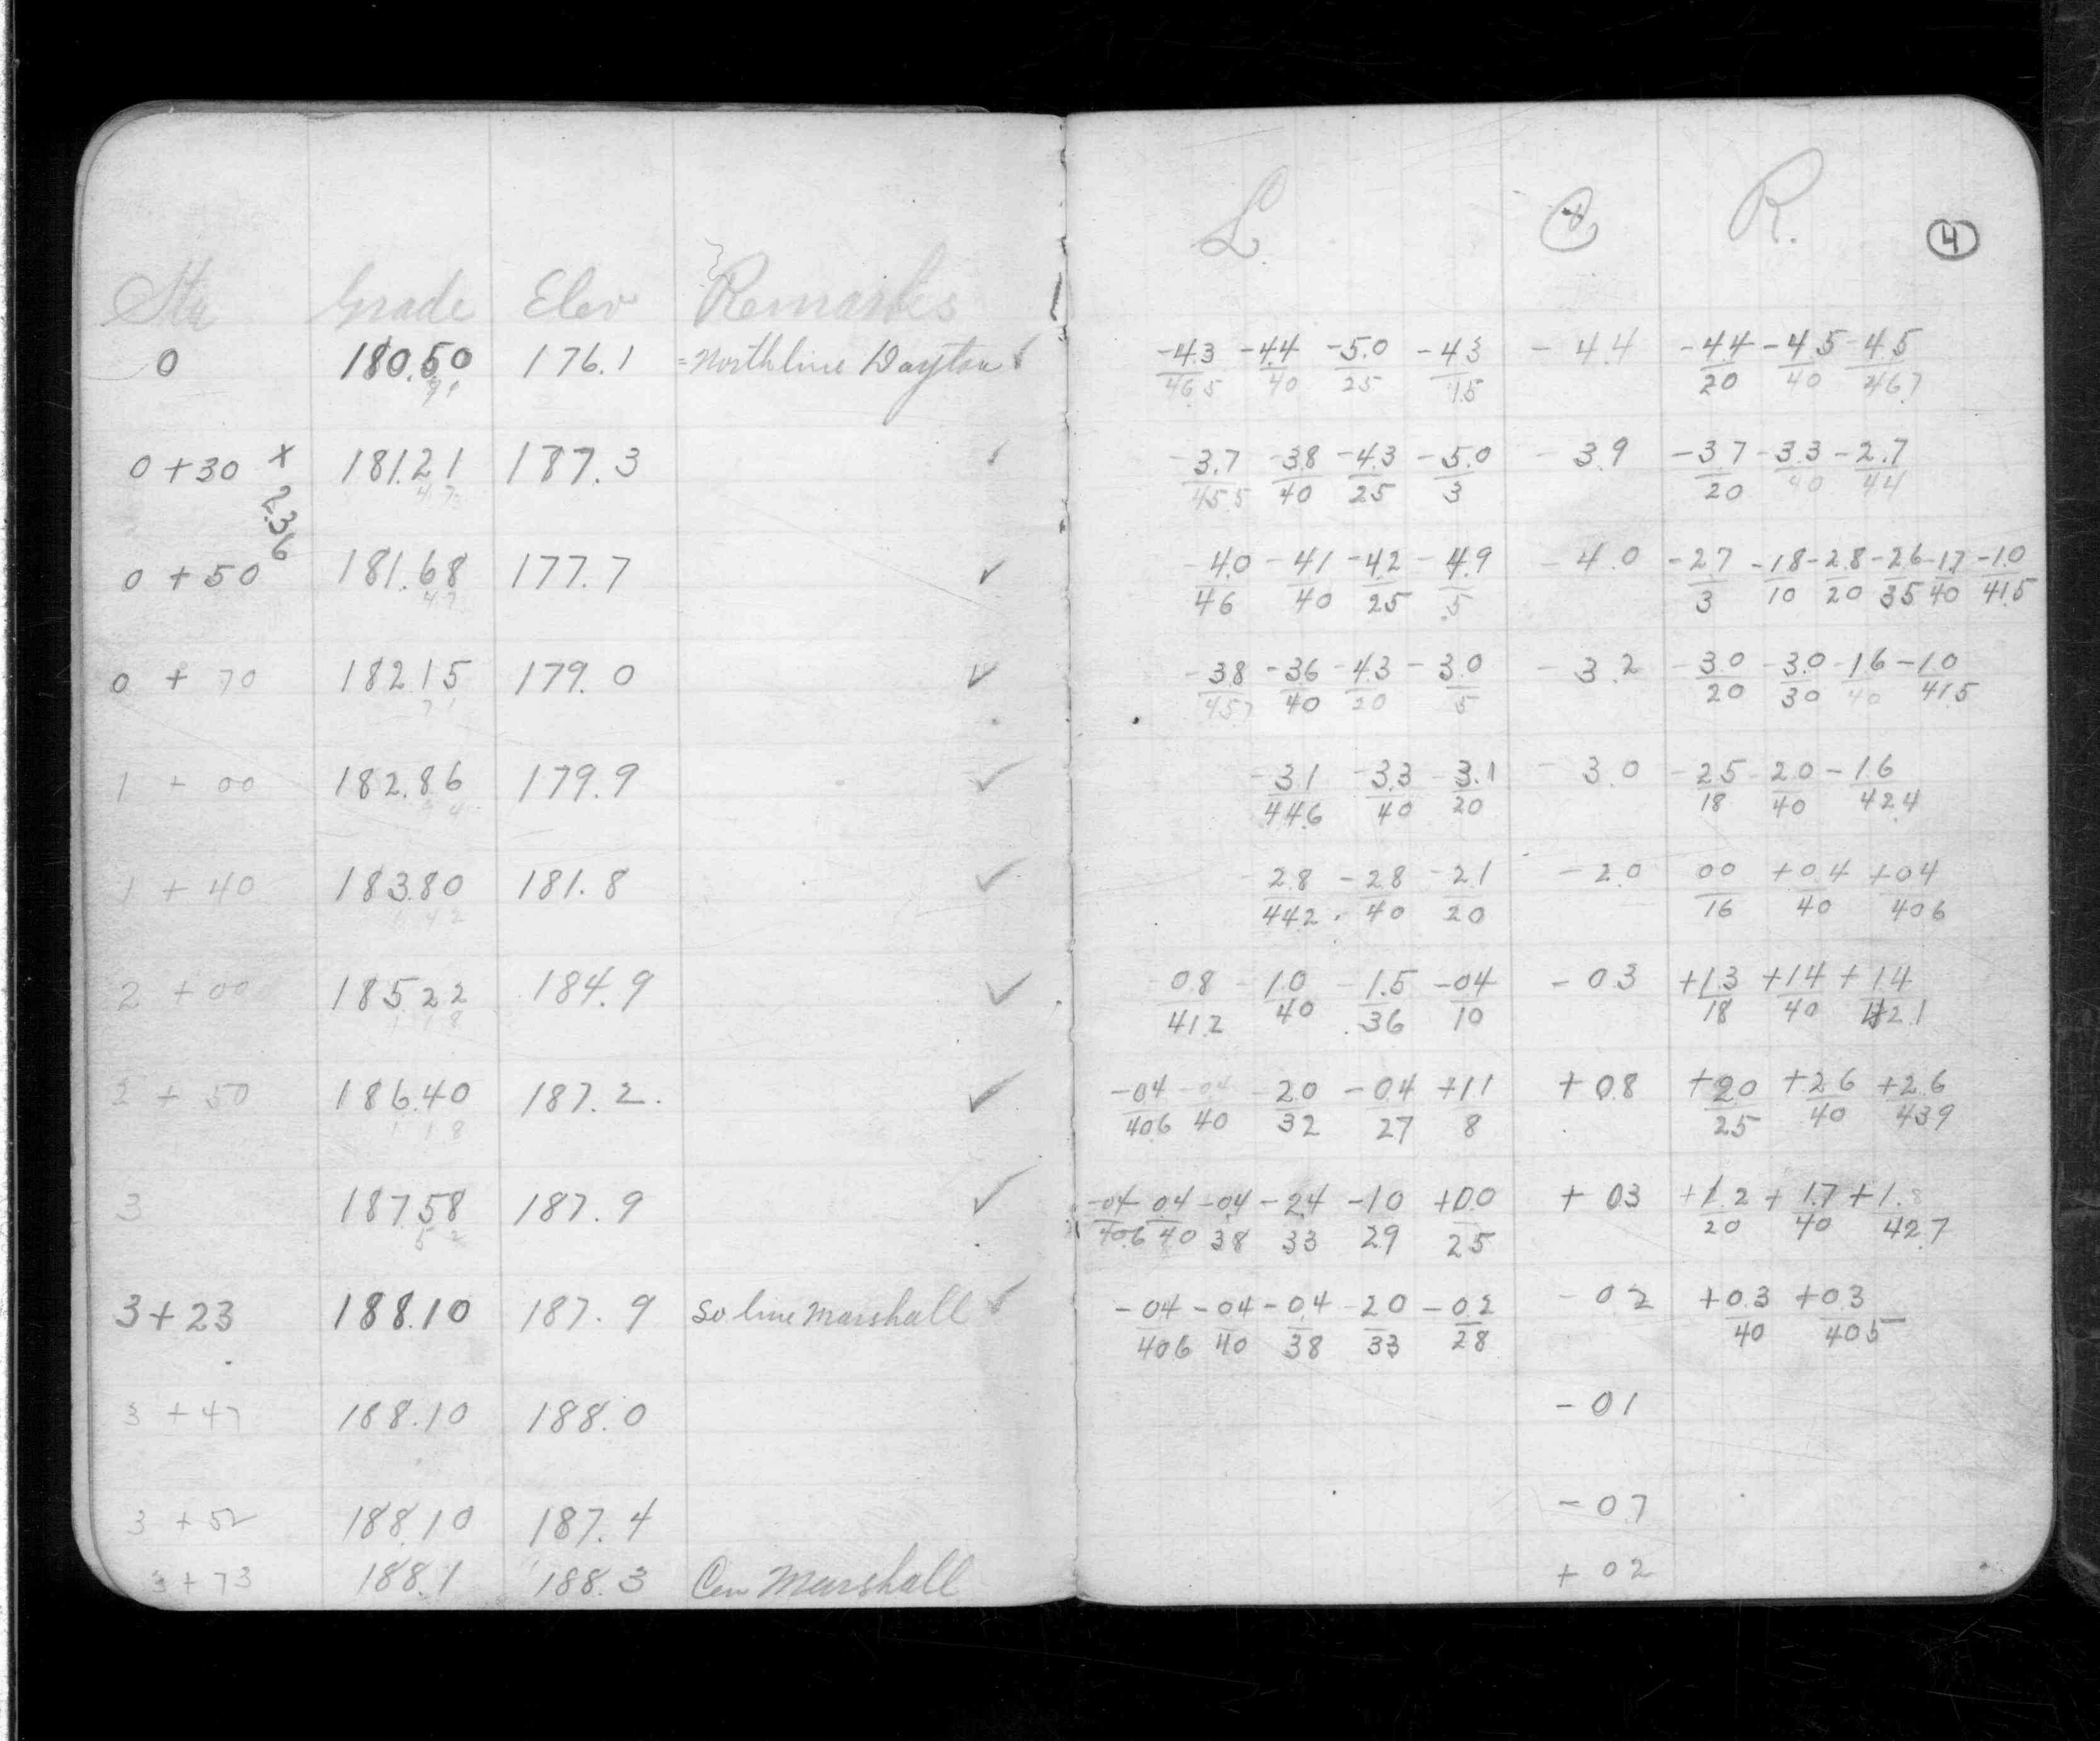 L. C R. 4
Sta Grade Elev Remarks
0 180.50 176.1 =North line Dayton ✓ -4.3 -4.4 -5.0 -4.3 -4.4 -4.4 -4.5 -4.5
46.5 40 25 15 20 40 46.7
0+30 x 181.21 187.3 ✓ -3.7 -3.8 -4.3 -5.0 -3.9 -3.7 -3.3 -2.7
47 45.5 40 25 3 20 40 44
2.36
0+50 181.68 177.7 ✓ -4.0 -4.1 -4.2 -4.9 -4.0 -2.7 -1.8 -2.8 -2.6 -1.7 -1.0
47 46 40 25 5 3 10 20 35 40 41.5
0+70 182.15 179.0 ✓ -3.8 -3.6 -4.3 -3.0 -3.2 -3.0 -3.0 -1.6 -1.0
71 45.7 40 20 5 20 30 40 41.5
1+00 182.86 179.9 ✓ -3.1 -3.3 3.1 -3.0 -2.5 -2.0 -1.6
94 44.6 40 20 18 40 42.4
1+40 183.80 181.8 ✓ -2.8 -2.8 -2.1 -2.0 00 +0.4 +0.4
1 42 44.2 40 20 16 40 40.6
2+00 185.22 184.9 ✓ 0.8 1.0 -1.5 -0.4 -0.3 +1.3 +1.4 +1.4
1 18 41.2 40 36 10 18 40 42.1
2+50 186.40 187.2. ✓ -0.4 -0.4 -2.0 -0.4 +1.1 +0.8 +2.0 +2.6 +2.6
1 18 40.6 40 32 27 8 25 40 43.9
3 187.58 187.9 ✓ -0.4 0.4 -0.4 -2.4 -1.0 +0.0 +0.3 +1.2 +1.7 +1.8
52 40.6 40 38 33 29 25 20 40 42.7
3+23 188.10 187.9 So line Marshall ✓ -0.4 -0.4 -0.4 -2.0 -0.2 -0.2 +0.3 +0.3
40.6 40 38 33 28 40 40.5
3+47 188.10 188.0 -0.1
3+52 188.10 187.4 -0.7
3+73 188.1 188.3 Cen Marshall +0.2